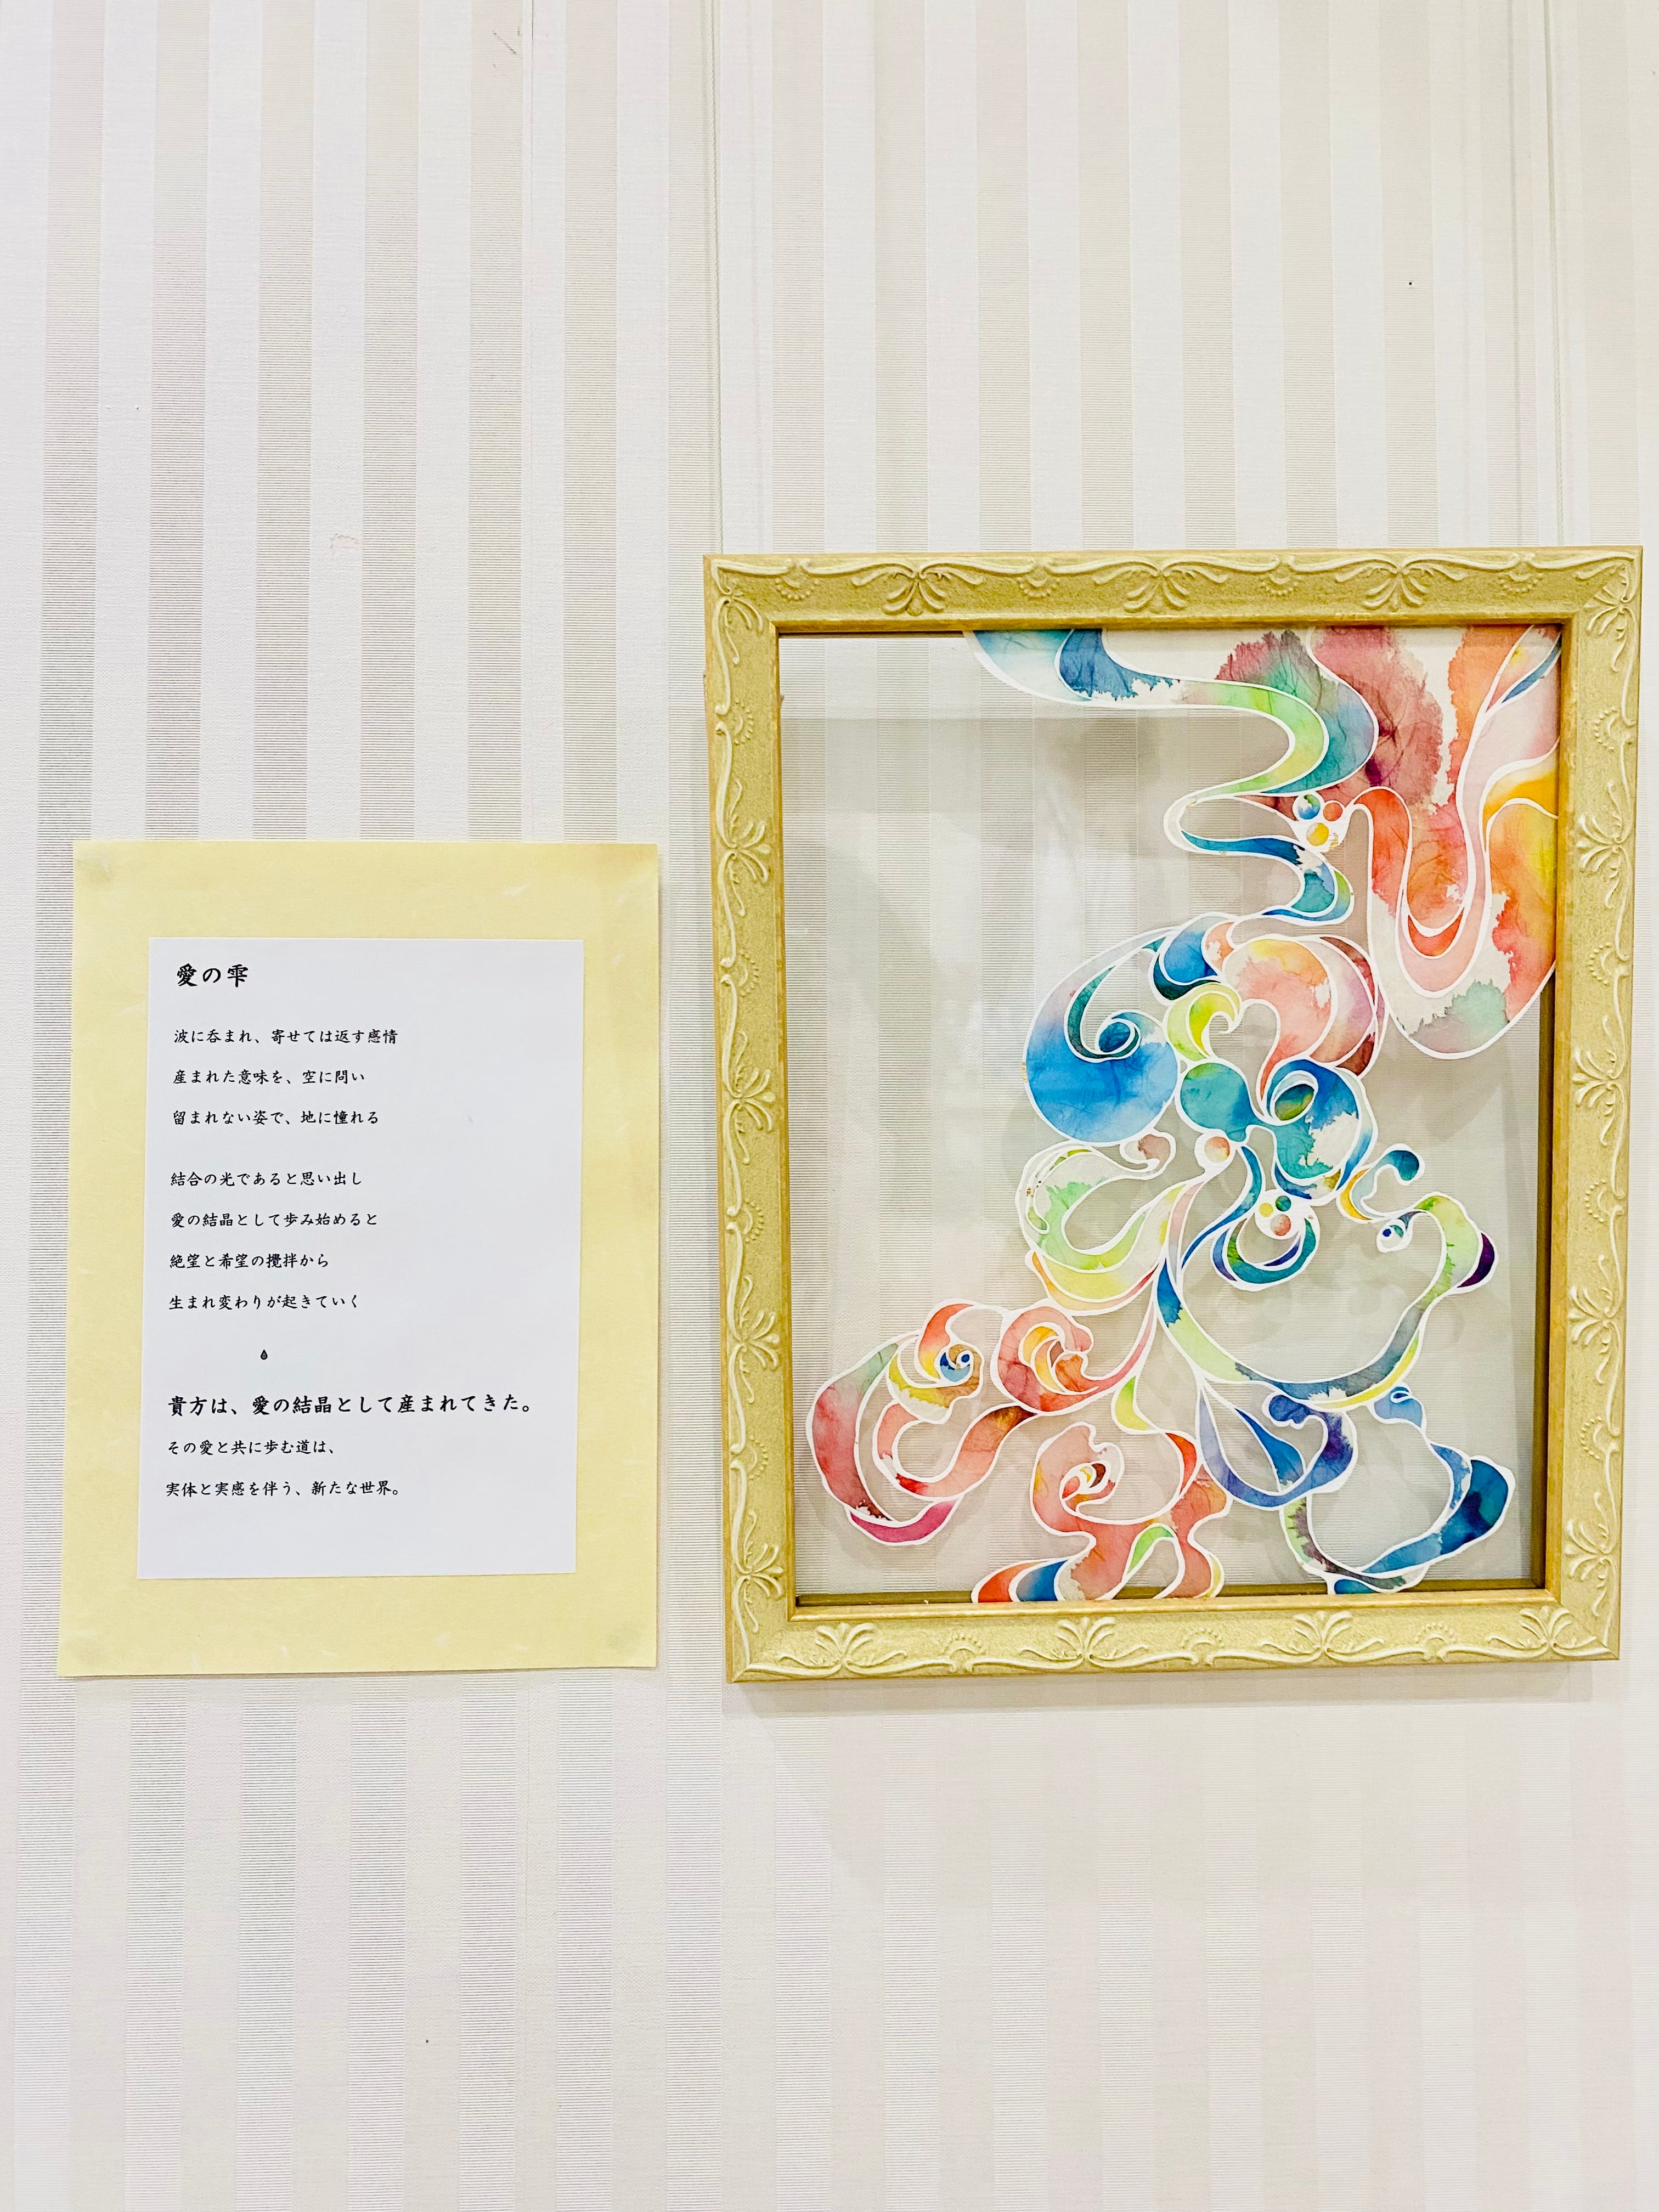 愛の雫
波に呑まれ、寄せては返す感情
産まれた意味を、空に問い
留まれない姿で、地に憧れる
結合の光であると思い出し
愛の結晶として歩み始めると
絶望と希望の攪拌から
生まれ変わりが起きていく
貴方は、愛の結晶として産まれてきた。
その愛と共に歩む道は、
実体と実感を伴う、新たな世界。